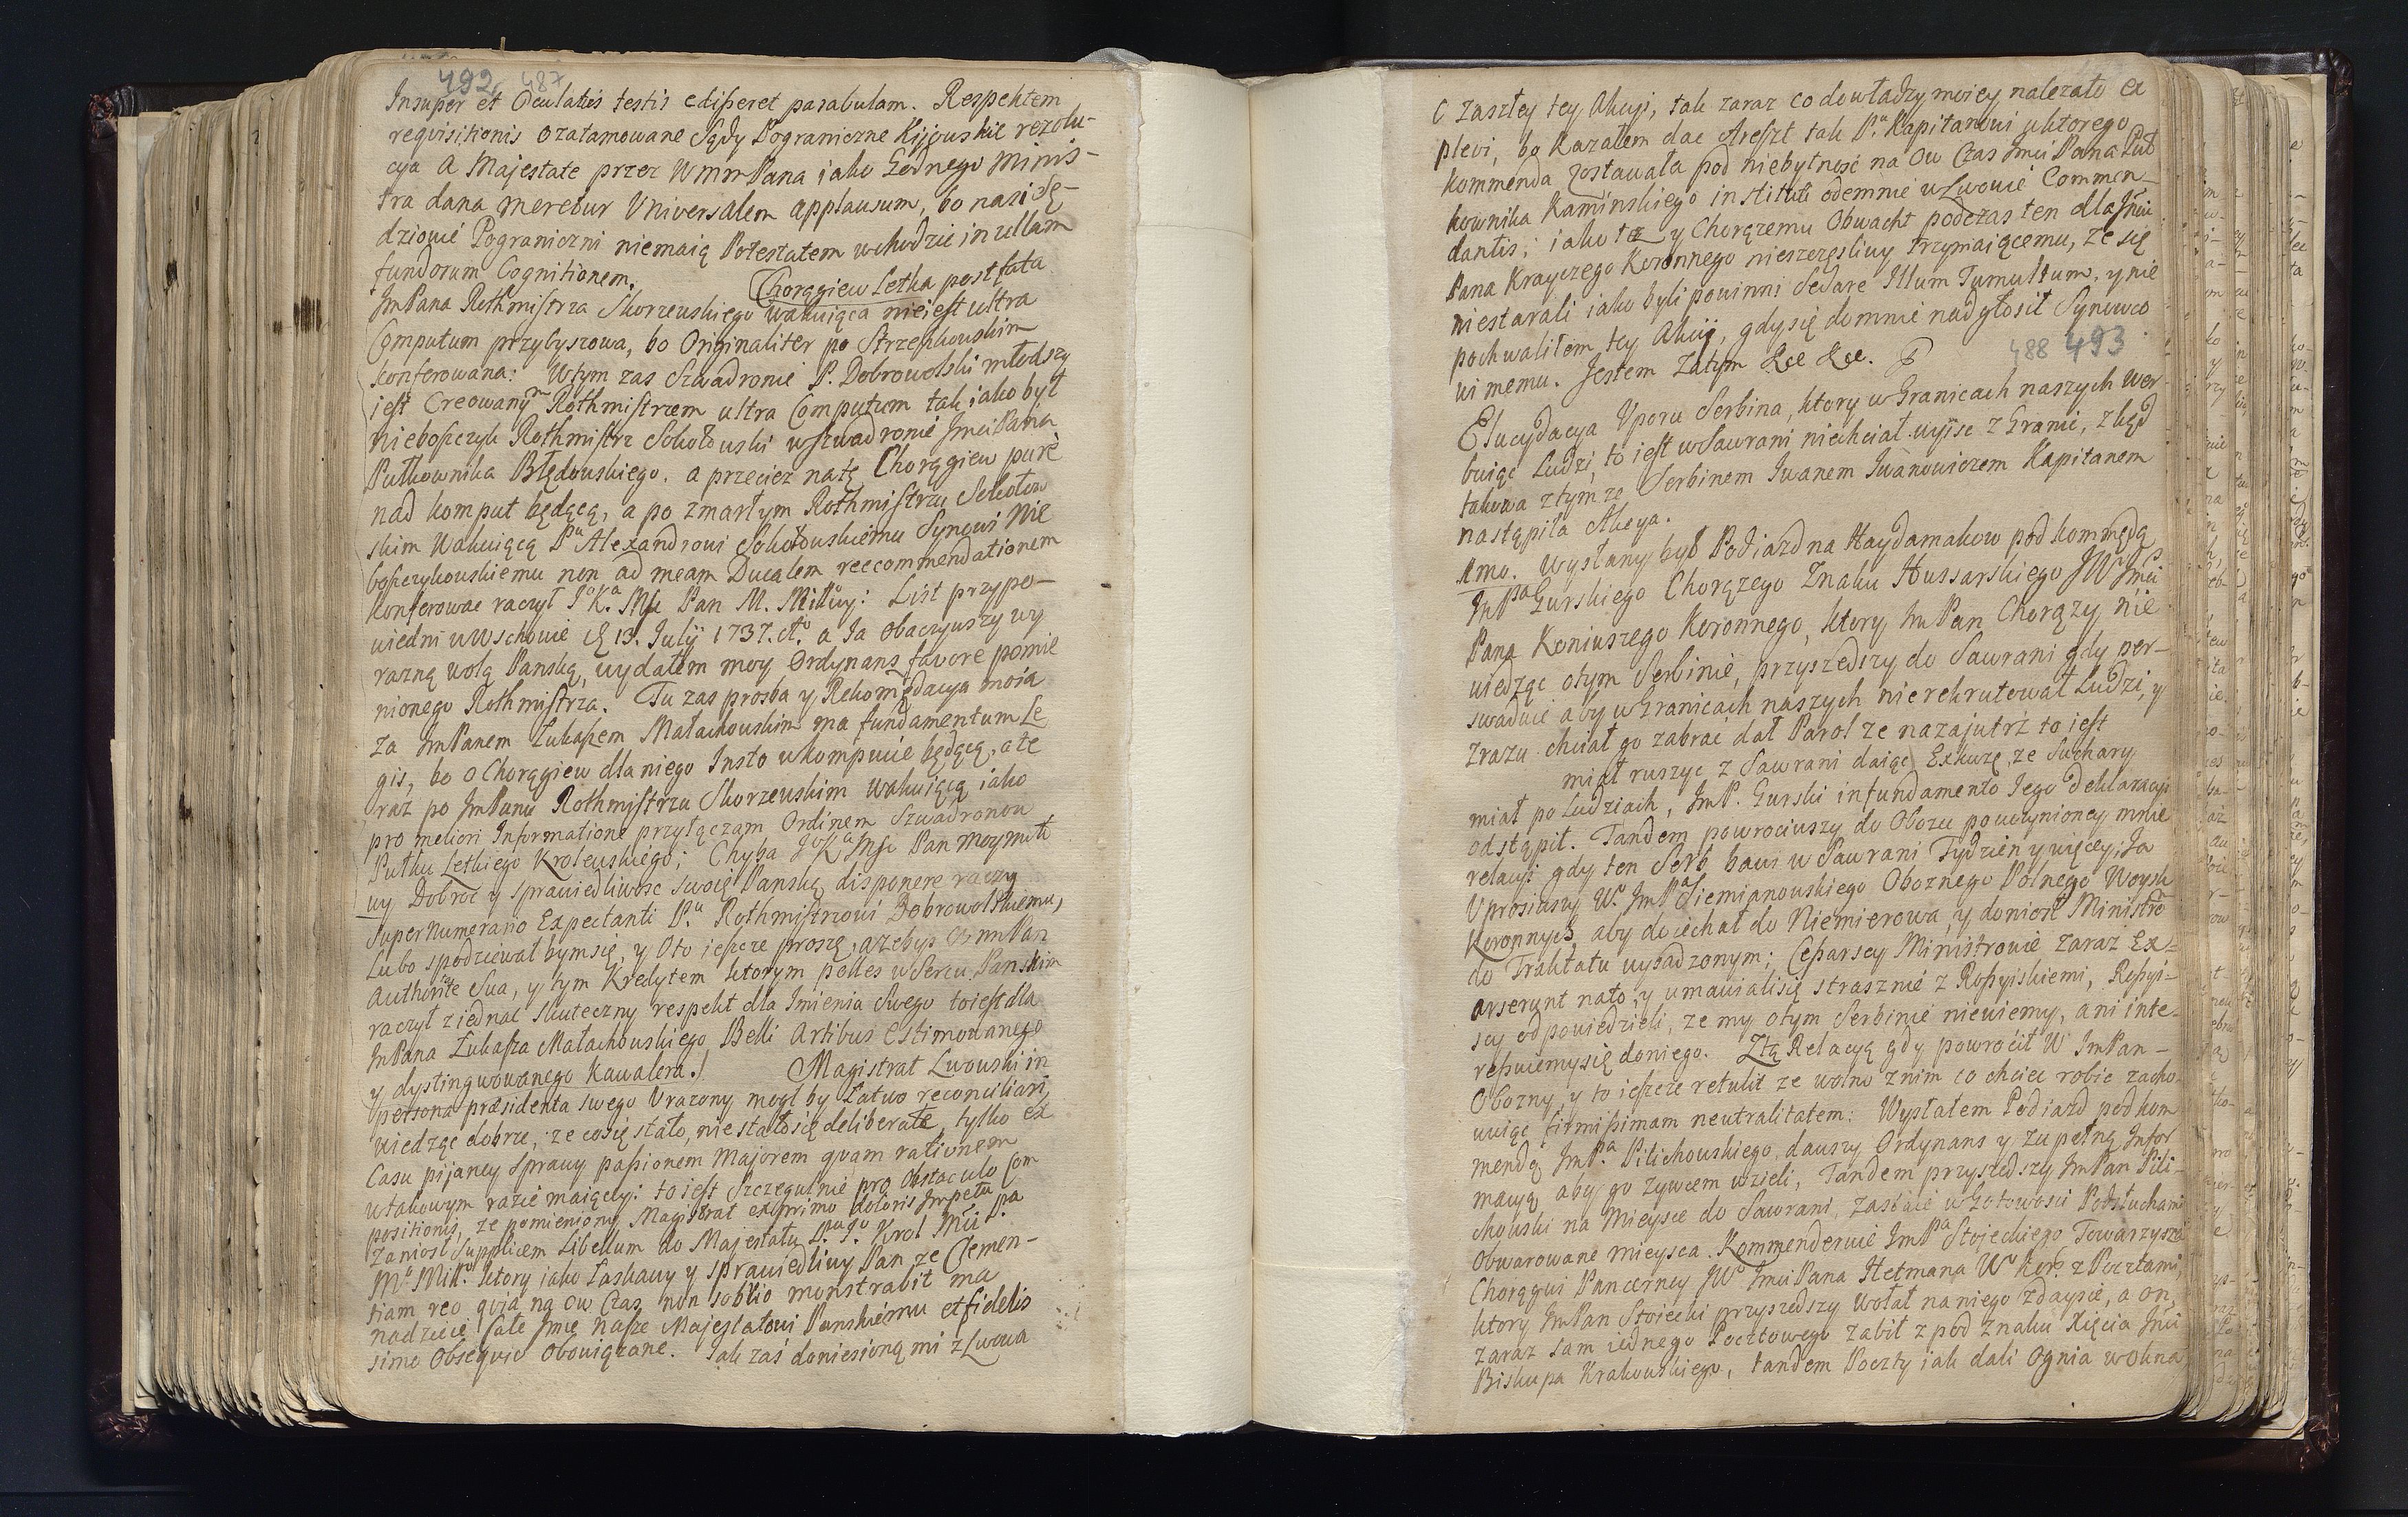 492 487
Insuper et Oculatus testis edisseret parabulam. Respektem
requisitionis o zatamowane Sądy Pograniczne Kijowskie rezolu-
cya a Majestate przez WmmPana iako Godnego Minis-
tra dana meretur Universalem applausum, bo nasi Sę-
dziowie Pograniczni niemaią Potestatem wchodzić in ullam
fundorum Cognitionem. Chorągiew Letka post fata
JmPana Rothmistrza Skorzewskiego wakuiąca nie iest ultra
Computum przybyszowa, bo Originaliter po Strzeszkowskim
konferowana: Wtym zas Szwadronie P. Dobrowolski młodszy
iest Creowanym Rothmistrzem ultra Computum tak iako był
nieboszczyk Rothmistrz Sokołowski w szwadronie JmciPana
Pułkownika Błędowskiego. a przeciez na tę Chorągiew purè
nad komput będącą, a po zmarłym Rothmistrzu Sokołow
skim wakuiącą Pu Alexandrowi Sokołowskiemu Synowi nie
boszczykowskiemu non ad meam Ducalem reccommendationem
konferować raczył JoKa Mść Pan M. Miłłwy: List przypo-
wiedni w Wschowie d 13. Julÿ 1737. Ao. a Ja obaczywszy wy
razną wolą Panską, wydałem moy Ordynans favore pomie
nionego Rothmistrza. Tu zas prosba y Rekomędacya moia
za JmPanem Łukaszem Małachowskim ma fundamentum Le
gis, bo o Chorągiew dla niego Insto w kompucie będącą, a te
raz po JmPanu Rothmistrzu Skorzewskim wakuiącą iako
pro meliori Informatione przyłączam Ordinem Szwadronow
Pułku Letkiego Krolewskiego; Chyba JoKa Mść Pan moy miłł
wy Dobroć y sprawiedliwość swoię Panską disponere raczy
supernumerario Expectanti Pu. Rothmistrzowi Dobrowolskiemu,
Lubo spodziewał bym się, y o to ieszcze proszę, azebyś WmmPan
authorite sua, y tym kredytem ktorym polles w Sercu Panskim
raczył ziednać skuteczny respekt dla Imienia swego to iest dla
JmPana Łukasza Małachowskiego Belli Artibus estimowanego
y dystingwowanego kawalera.) Magistrat Lwowski in
persona præsidenta swego Urazony mogł by łatwo reconciliari,
wiedząc dobrze, ze co się stało, nie stało się deliberate, tylko ex
Casu pijaney sprawy passionem majorem quam rationem
w takowym razie maiącey: to iest szczegulnie pro obstaculo Com
positionis, ze pomieniony Magistrat ex primo doloris Impetu
zaniosł supplicem Libellum do Majestatu Pa. Jo. Krol Jmci Pa
Mo Miło. ktory iako Łaskawy y sprawiedliwy Pan ze Clemen-
tiam reo quia na ow Czas non sobrio monstrabit ma
nadzieię całe Jmie nasze Majestatowi Panskiemu et fidelis
simo Obsequio obowiązane. Jak zaś doniesioną mi z Lwowa
o zaszłey tey Akcyi, tak zaraz co do władzy moiey nalezało ex
plevi, bo kazałem dać Areszt tak Pu. Kapitanowi u ktorego
kommenda zostawała pod niebytność na ow Czas Jmci Pana Puł
kownika Kaminskiego instituti odemnie w Lwowie Commen
dantis; iako tez y Chorązemu Obwacht podczas ten dla Jmci
Pana Krayczego Koronnego nieszczęsliwy trzymaiącemu, ze się
niestarali iako byli powinni sedare Illum Tumultum, y nie
pochwaliłem tey Akcÿi, gdy się do mnie nadgłosił Synowco
wi memu. Jestem zatym &c &c.
488 493
Elucydacya Uporu Serbina, ktory w Granicach naszych wer
buiąc Ludzi, to iest w Sawrani niechciał wyiść z Granic, zkąd
takowa z tym ze Serbinem Iwanem Iwanowiczem Kapitanem
nastąpiła Akcya.
Imo. Wysłany był Podiazd na Haydamakow pod kommędą
JmPa Gurskiego Chorązego Znaku Hussarskiego JWo Jmci
Pana Koniuszego Koronnego, ktory JmPan Chorązy nie
wiedząc o tym Serbinie, przyszedszy do Sawrani gdy per-
swaduie aby w Granicach naszych nie rekrutował Ludzi, y
zrazu chciał go zabrać dał Parol ze nazajutrz to iest
miał ruszyć z Sawrani daiąc Exkuzę, ze Suchary
miał po Ludziach, JmP. Gurski in fundamento Jego Deklaracyi
odstąpił. Tandem powrociwszy do Obozu po uczynioney mnie
relacyi gdy ten Serb bawi w Sawrani Tydzien y więcey; Ja
Uprosiwszy W. JmPa Siemianowskiego Oboznego Polnego Woysk
Koronnych, aby doiechał do Niemierowa, y doniosł Ministro
do Traktatu wysadzonym; Cesarscy Ministrowie zaraz Ex-
arserunt na to, y umawiali się strasznie z Rossyiskiemi, Rossyi-
scy odpowiedzieli, ze my o tym Serbinie niewiemy, ani inte-
ressuiemy się do niego. Z tą Relacyą gdy powrocił W JmPan
Obozny, y to ieszcze retulit ze wolno z nim co chcieć robic zacho
wuiąc firmissimam neutralitatem: Wysłałem Podiazd pod kom
mendą JmPa. Pilichowskiego, dawszy Ordynans y zupełną Infor
macyą, aby go zywcem wzieli, Tandem przyszedszy JmPan Pili-
chowski na mieysce do Sawrani, zastaie w Gotowosci Podsłuchami
obwarowane mieysca. Kommenderuie JmPa Stojeckiego Towarzysza
Chorągwi Pancerney JWo JmciPana Hetmana Wo Kor. z Pocztami,
ktory JmPan Stoiecki przyszedszy wołał na niego zdaysię, a on,
zaraz sam iednego Pocztowego zabił z pod znaku Xięcia Jmci
Biskupa Krakowskiego, tandem Poczty iak dali ognia wokna